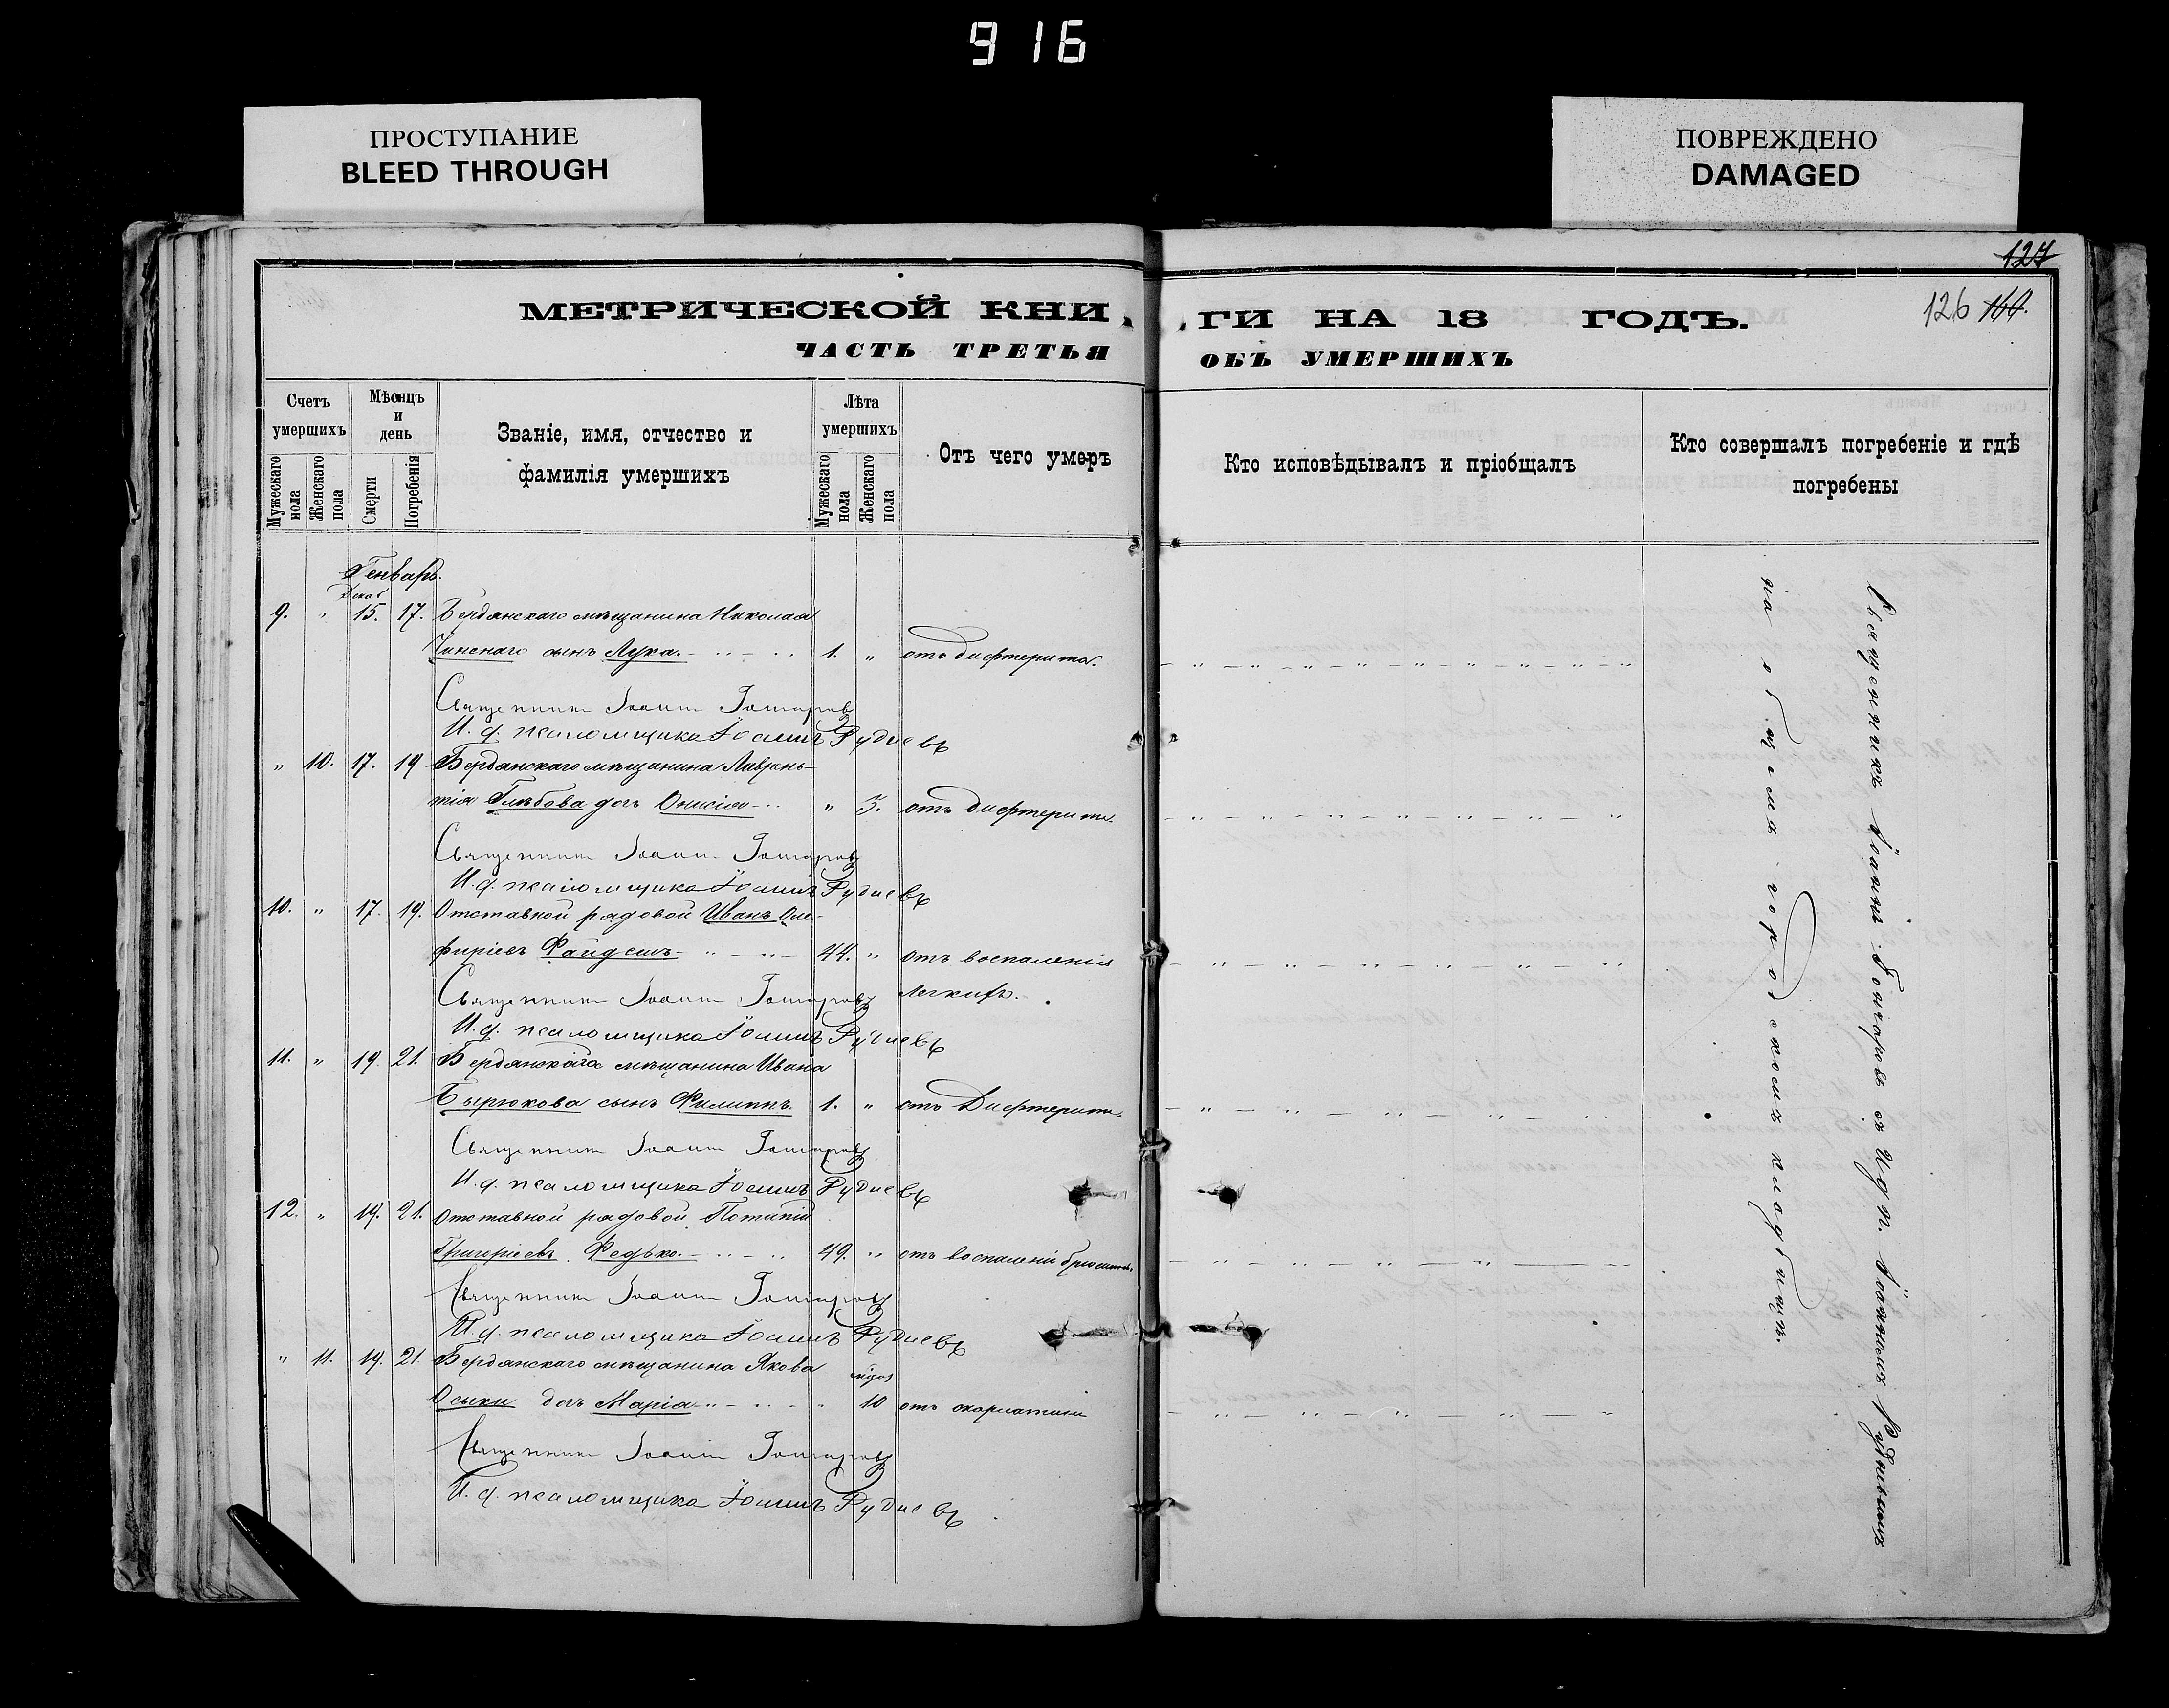 916
ПРОСТУПАНИЕ
BLEED THROUGH
ПОВРЕЖДЕНО
DAMAGED
127
126 160.
МЕТРИЧЕСКОЙ КНИ
ГИ НА 18 ГОДЪ.
ЧАСТЬ ТРЕТЬЯ
ОБЪ УМЕРШИХЪ
Счетъ умершихъ
Мѣсяцъ и день
Званіе, имя, отчество и фамилія умершихъ
Лѣта умершихъ
Отъ чего умеръ
Кто исповѣдывалъ и пріобщалъ
Кто совершалъ погребеніе и гдѣ погребены
Мужескаго пола
Женскаго пола
Смерти
Погребенія
Мужескаго пола
Женскаго пола
Генварь.
Декаб
9. " 15. 17. Бердянскаго мѣщанина Николая
сынъ Лука. 1. " отъ дифтерита.
Священникъ Іоаннъ Гончаровъ
И. д. псаломщика Іоаннъ Рудневъ
" 10. 17. 19 Бердянскаго мѣщанина Лаврен-
тія Глѣбова дочь Онисія " 3. отъ дифтерита.
Священникъ Іоаннъ Гончаровъ
И. д. псаломщика Іоаннъ Рудневъ
10. " 17. 19. Отставной рядовой Иванъ Оле-
фиріевъ 44. " отъ воспаленія
легкихъ.
Священникъ Іоаннъ Гончаровъ
И. д. псаломщика Іоаннъ Рудневъ
11. " 19. 21. Бердянскаго мѣщанина Ивана
Бырюкова сынъ Филиппъ. 1. " отъ Дифтерита.
Священникъ Іоаннъ Гончаровъ
И. д. псаломщика Іоаннъ Рудневъ
12. " 19. 21. Отставной рядовой Потапій
Григоріевъ Федько. 49. " отъ воспаленія
Священникъ Іоаннъ Гончаровъ
И. д. псаломщика Іоаннъ Рудневъ
" 11. 19. 21 Бердянскаго мѣщанина Якова
Осыки дочь Марія " 10 отъ скарлатини
Священникъ Іоаннъ Гончаровъ
И. д. псаломщика Іоаннъ Рудневъ
Священникъ Іоаннъ Гончаровъ съ И д п. Іоанномъ Рудневымъ
на общемъ городскомъ кладбищѣ.